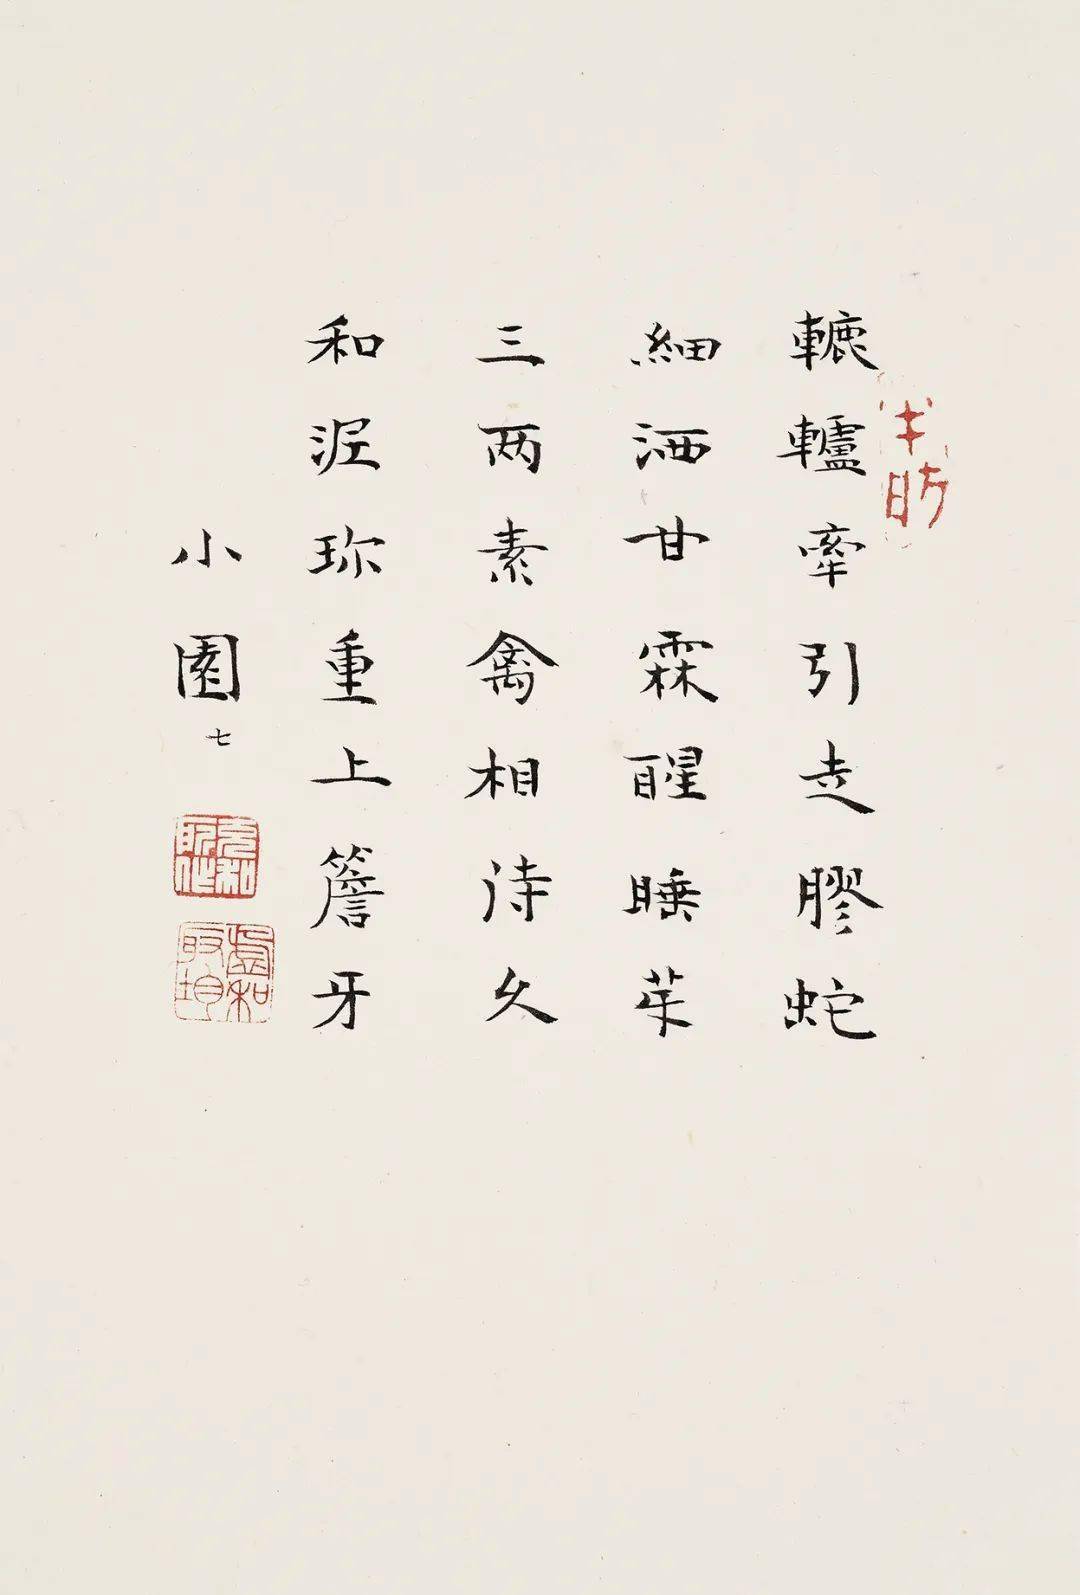 轆轤牽引走膠蛇
細洒甘霖醒睡芽
三两素禽相待久
和泥珎重上簷牙
小園七